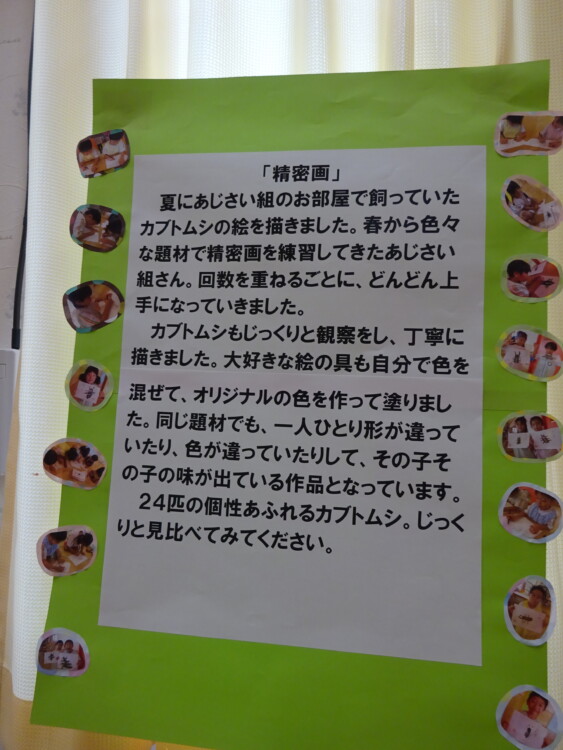 「精密画」
夏にあじさい組のお部屋で飼っていた
カブトムシの絵を描きました。春から色々
な題材で精密画を練習してきたあじさい
組さん。回数を重ねるごとに、どんどん上
手になっていきました。
カブトムシもじっくりと観察をし、丁寧に
描きました。大好きな絵の具も自分で色を
混ぜて、オリジナルの色を作って塗りまし
た。同じ題材でも、一人ひとり形が違って
いたり、色が違っていたりして、その子そ
の子の味が出ている作品となっています。
24匹の個性あふれるカブトムシ。じっく
りと見比べてみてください。